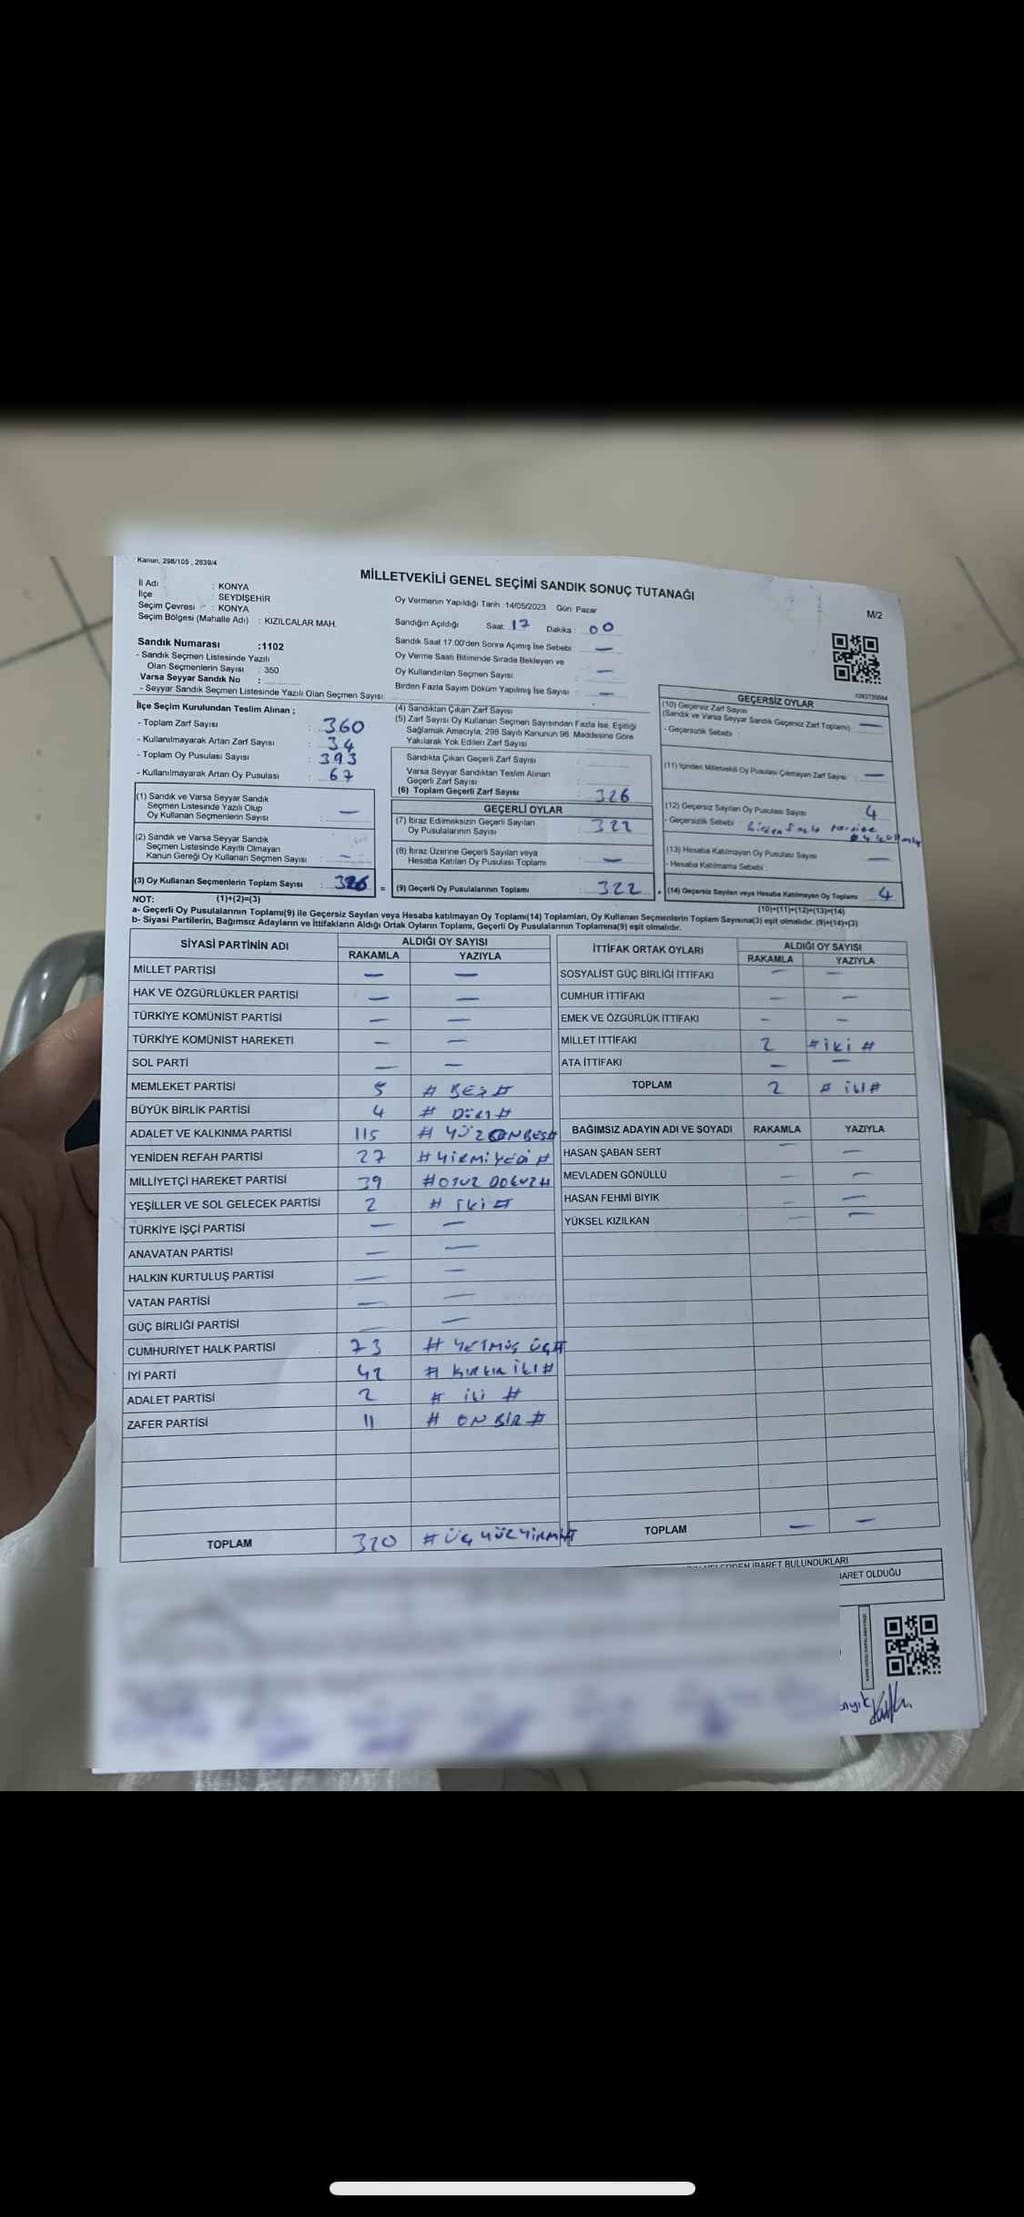 Kanun, 298/105 , 2839/4
MİLLETVEKİLİ GENEL SEÇİMİ SANDIK SONUÇ TUTANAĞI
M/2
İl Adı : KONYA
İlçe : SEYDİŞEHİR
Seçim Çevresi : KONYA
Seçim Bölgesi (Mahalle Adı) : KIZILCALAR MAH.
Oy Vermenin Yapıldığı Tarih :14/05/2023 Gün Pazar
Sandığın Açıldığı Saat: 17 Dakika : 00
Sandık Saat 17:00'den Sonra Açılmış İse Sebebi : —
Oy Verme Saati Bitiminde Sırada Bekleyen ve
Oy Kullandırılan Seçmen Sayısı : —
Birden Fazla Sayım Döküm Yapılmış İse Sayısı : —
Sandık Numarası :1102
- Sandık Seçmen Listesinde Yazılı
Olan Seçmenlerin Sayısı : 350
Varsa Seyyar Sandık No :
- Seyyar Sandık Seçmen Listesinde Yazılı Olan Seçmen Sayısı
İlçe Seçim Kurulundan Teslim Alınan ;
- Toplam Zarf Sayısı : 360
- Kullanılmayarak Artan Zarf Sayısı : 34
- Toplam Oy Pusulası Sayısı : 393
- Kullanılmayarak Artan Oy Pusulası : 67
(1) Sandık ve Varsa Seyyar Sandık
Seçmen Listesinde Yazılı Olup
Oy Kullanan Seçmenlerin Sayısı : —
(2) Sandık ve Varsa Seyyar Sandık
Seçmen Listesinde Kayıtlı Olmayan
Kanun Gereği Oy Kullanan Seçmen Sayısı : —
(3) Oy Kullanan Seçmenlerin Toplam Sayısı : 326
(4) Sandıktan Çıkan Zarf Sayısı
(5) Zarf Sayısı Oy Kullanan Seçmen Sayısından Fazla İse, Eşitliği
Sağlamak Amacıyla, 298 Sayılı Kanunun 98. Maddesine Göre
Yakılarak Yok Edilen Zarf Sayısı
Sandıkta Çıkan Geçerli Zarf Sayısı :
Varsa Seyyar Sandıktan Teslim Alınan
Geçerli Zarf Sayısı :
(6) Toplam Geçerli Zarf Sayısı : 326
GEÇERLİ OYLAR
(7) İtiraz Edilmeksizin Geçerli Sayılan
Oy Pusulalarının Sayısı : 322
(8) İtiraz Üzerine Geçerli Sayılan veya
Hesaba Katılan Oy Pusulası Toplamı : —
= (9) Geçerli Oy Pusulalarının Toplamı : 322 +
GEÇERSİZ OYLAR
(10) Geçersiz Zarf Sayısı
(Sandık ve Varsa Seyyar Sandık Geçersiz Zarf Toplamı) —
- Geçersizlik Sebebi :
(11) İçinden Milletvekili Oy Pusulası Çıkmayan Zarf Sayısı : —
(12) Geçersiz Sayılan Oy Pusulası Sayısı : 4
- Geçersizlik Sebebi : Birden fazla partiye
(13) Hesaba Katılmayan Oy Pusulası Sayısı : —
- Hesaba Katılmama Sebebi :
(14) Geçersiz Sayılan veya Hesaba Katılmayan Oy Toplamı : 4
(1)+(2)=(3)
(10)+(11)+(12)+(13)=(14)
NOT:
a- Geçerli Oy Pusulalarının Toplamı(9) ile Geçersiz Sayılan veya Hesaba katılmayan Oy Toplamı(14) Toplamları, Oy Kullanan Seçmenlerin Toplam Sayısına(3) eşit olmalıdır. (9)+(14)=(3)
b- Siyasi Partilerin, Bağımsız Adayların ve İttifakların Aldığı Ortak Oyların Toplamı, Geçerli Oy Pusulalarının Toplamına(9) eşit olmalıdır.
SİYASİ PARTİNİN ADI ALDIĞI OY SAYISI
RAKAMLA YAZIYLA
MİLLET PARTİSİ — —
HAK VE ÖZGÜRLÜKLER PARTİSİ — —
TÜRKİYE KOMÜNİST PARTİSİ — —
TÜRKİYE KOMÜNİST HAREKETİ — —
SOL PARTİ — —
MEMLEKET PARTİSİ 5 # BEŞ #
BÜYÜK BİRLİK PARTİSİ 4 # DÖRT #
ADALET VE KALKINMA PARTİSİ 115 # YÜZONBEŞ #
YENİDEN REFAH PARTİSİ 27 # YİRMİYEDİ #
MİLLİYETÇİ HAREKET PARTİSİ 39 # OTUZ DOKUZ #
YEŞİLLER VE SOL GELECEK PARTİSİ 2 # İKİ #
TÜRKİYE İŞÇİ PARTİSİ — —
ANAVATAN PARTİSİ — —
HALKIN KURTULUŞ PARTİSİ — —
VATAN PARTİSİ — —
GÜÇ BİRLİĞİ PARTİSİ —
CUMHURİYET HALK PARTİSİ 73 # YETMİŞ ÜÇ #
İYİ PARTİ 42 #
ADALET PARTİSİ 2 # iki #
ZAFER PARTİSİ 11 # ON BİR #
TOPLAM 320 # ÜÇYÜZYİRMİ #
İTTİFAK ORTAK OYLARI ALDIĞI OY SAYISI
RAKAMLA YAZIYLA
SOSYALİST GÜÇ BİRLİĞİ İTTİFAKI — —
CUMHUR İTTİFAKI — —
EMEK VE ÖZGÜRLÜK İTTİFAKI — —
MİLLET İTTİFAKI 2 # iki #
ATA İTTİFAKI — —
TOPLAM 2 # iki #
BAĞIMSIZ ADAYIN ADI VE SOYADI RAKAMLA YAZIYLA
HASAN ŞABAN SERT — —
MEVLADEN GÖNÜLLÜ — —
HASAN FEHMİ BIYIK — —
YÜKSEL KIZILKAN — —
TOPLAM — —
İBARET BULUNDUKLARI
OLDUĞU